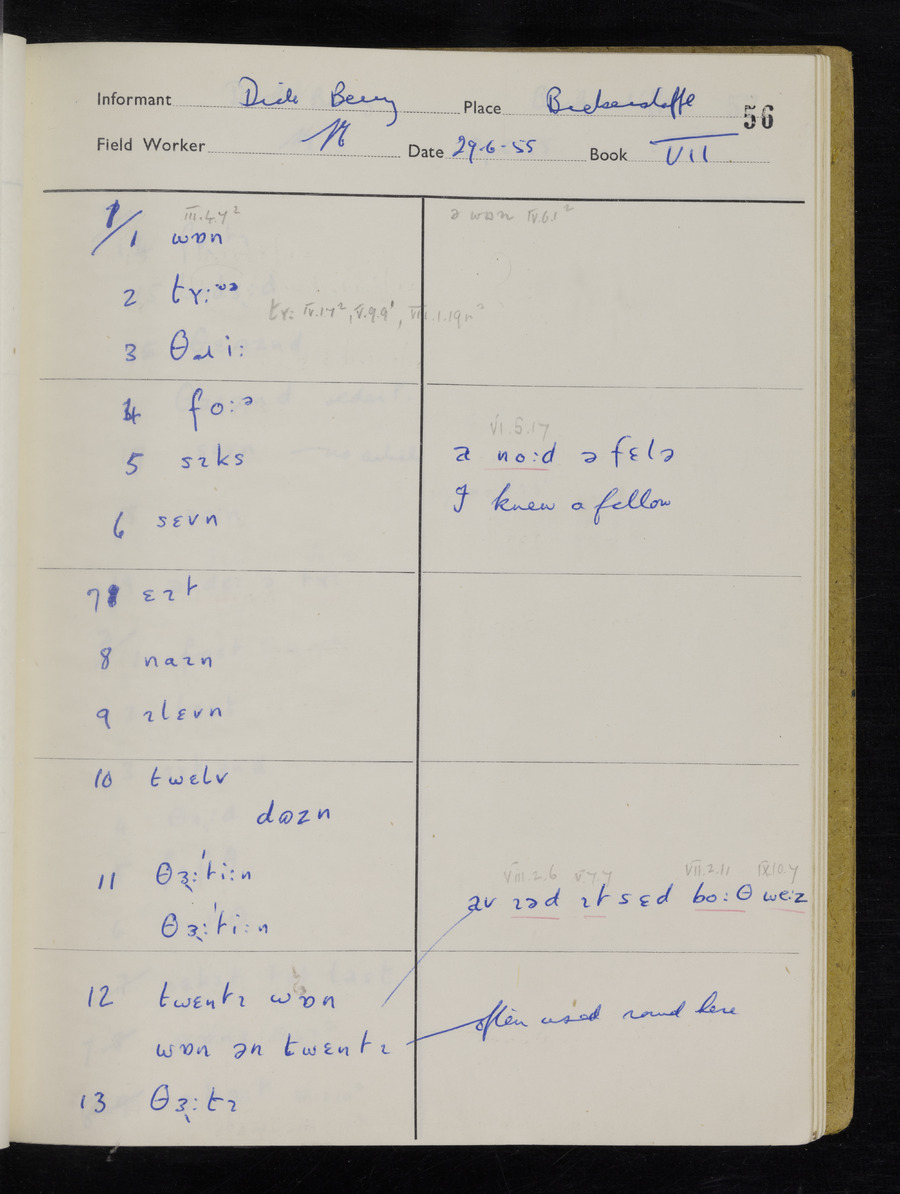 Informant Dick Berry Place Bickerstaffe 56
Field Worker Date 29-6-55 Book VII
III.4.7² ə wɒn IV.6.1²
1/1 wɒn
2 tʏ:ᶷᵊ
tʏ: IV.17², V.9.9¹, VIII.1.19n²
3 θɹi:
4 fo:ᵊ
VI.5.17
5 sɪks a no:d ə fɛlə
6 sɛvn I knew a fellow
7 ɛɪt
8 naɪn
9 ɪlɛvn
10 twɛlv
dɷzn
11 θɜ˞:ˈti:n
VIII.2.6 V.7.7 VII.2.11 IX.10.7
av ɪəd ɪt sɛd bo:θ we:z
θɜ˞:ˈti:n
12 twɛntɪ wɒn
often used round here
wɒn ən twɛntɪ
13 θɜ˞:tɪ